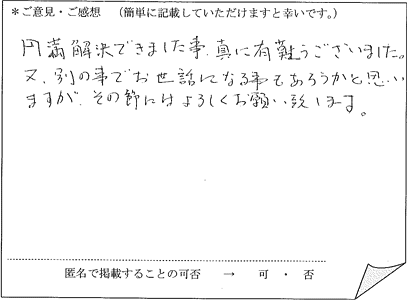 ＊ご意見・ご感想　（簡単に記載していただけますと幸いです。）
円満解決できました事、真に有難うございました。
又、別の事でお世話になる事もあろうかと思い
ますが、その節にはよろしくお願い致します。
匿名で掲載することの可否　→　可　・　否